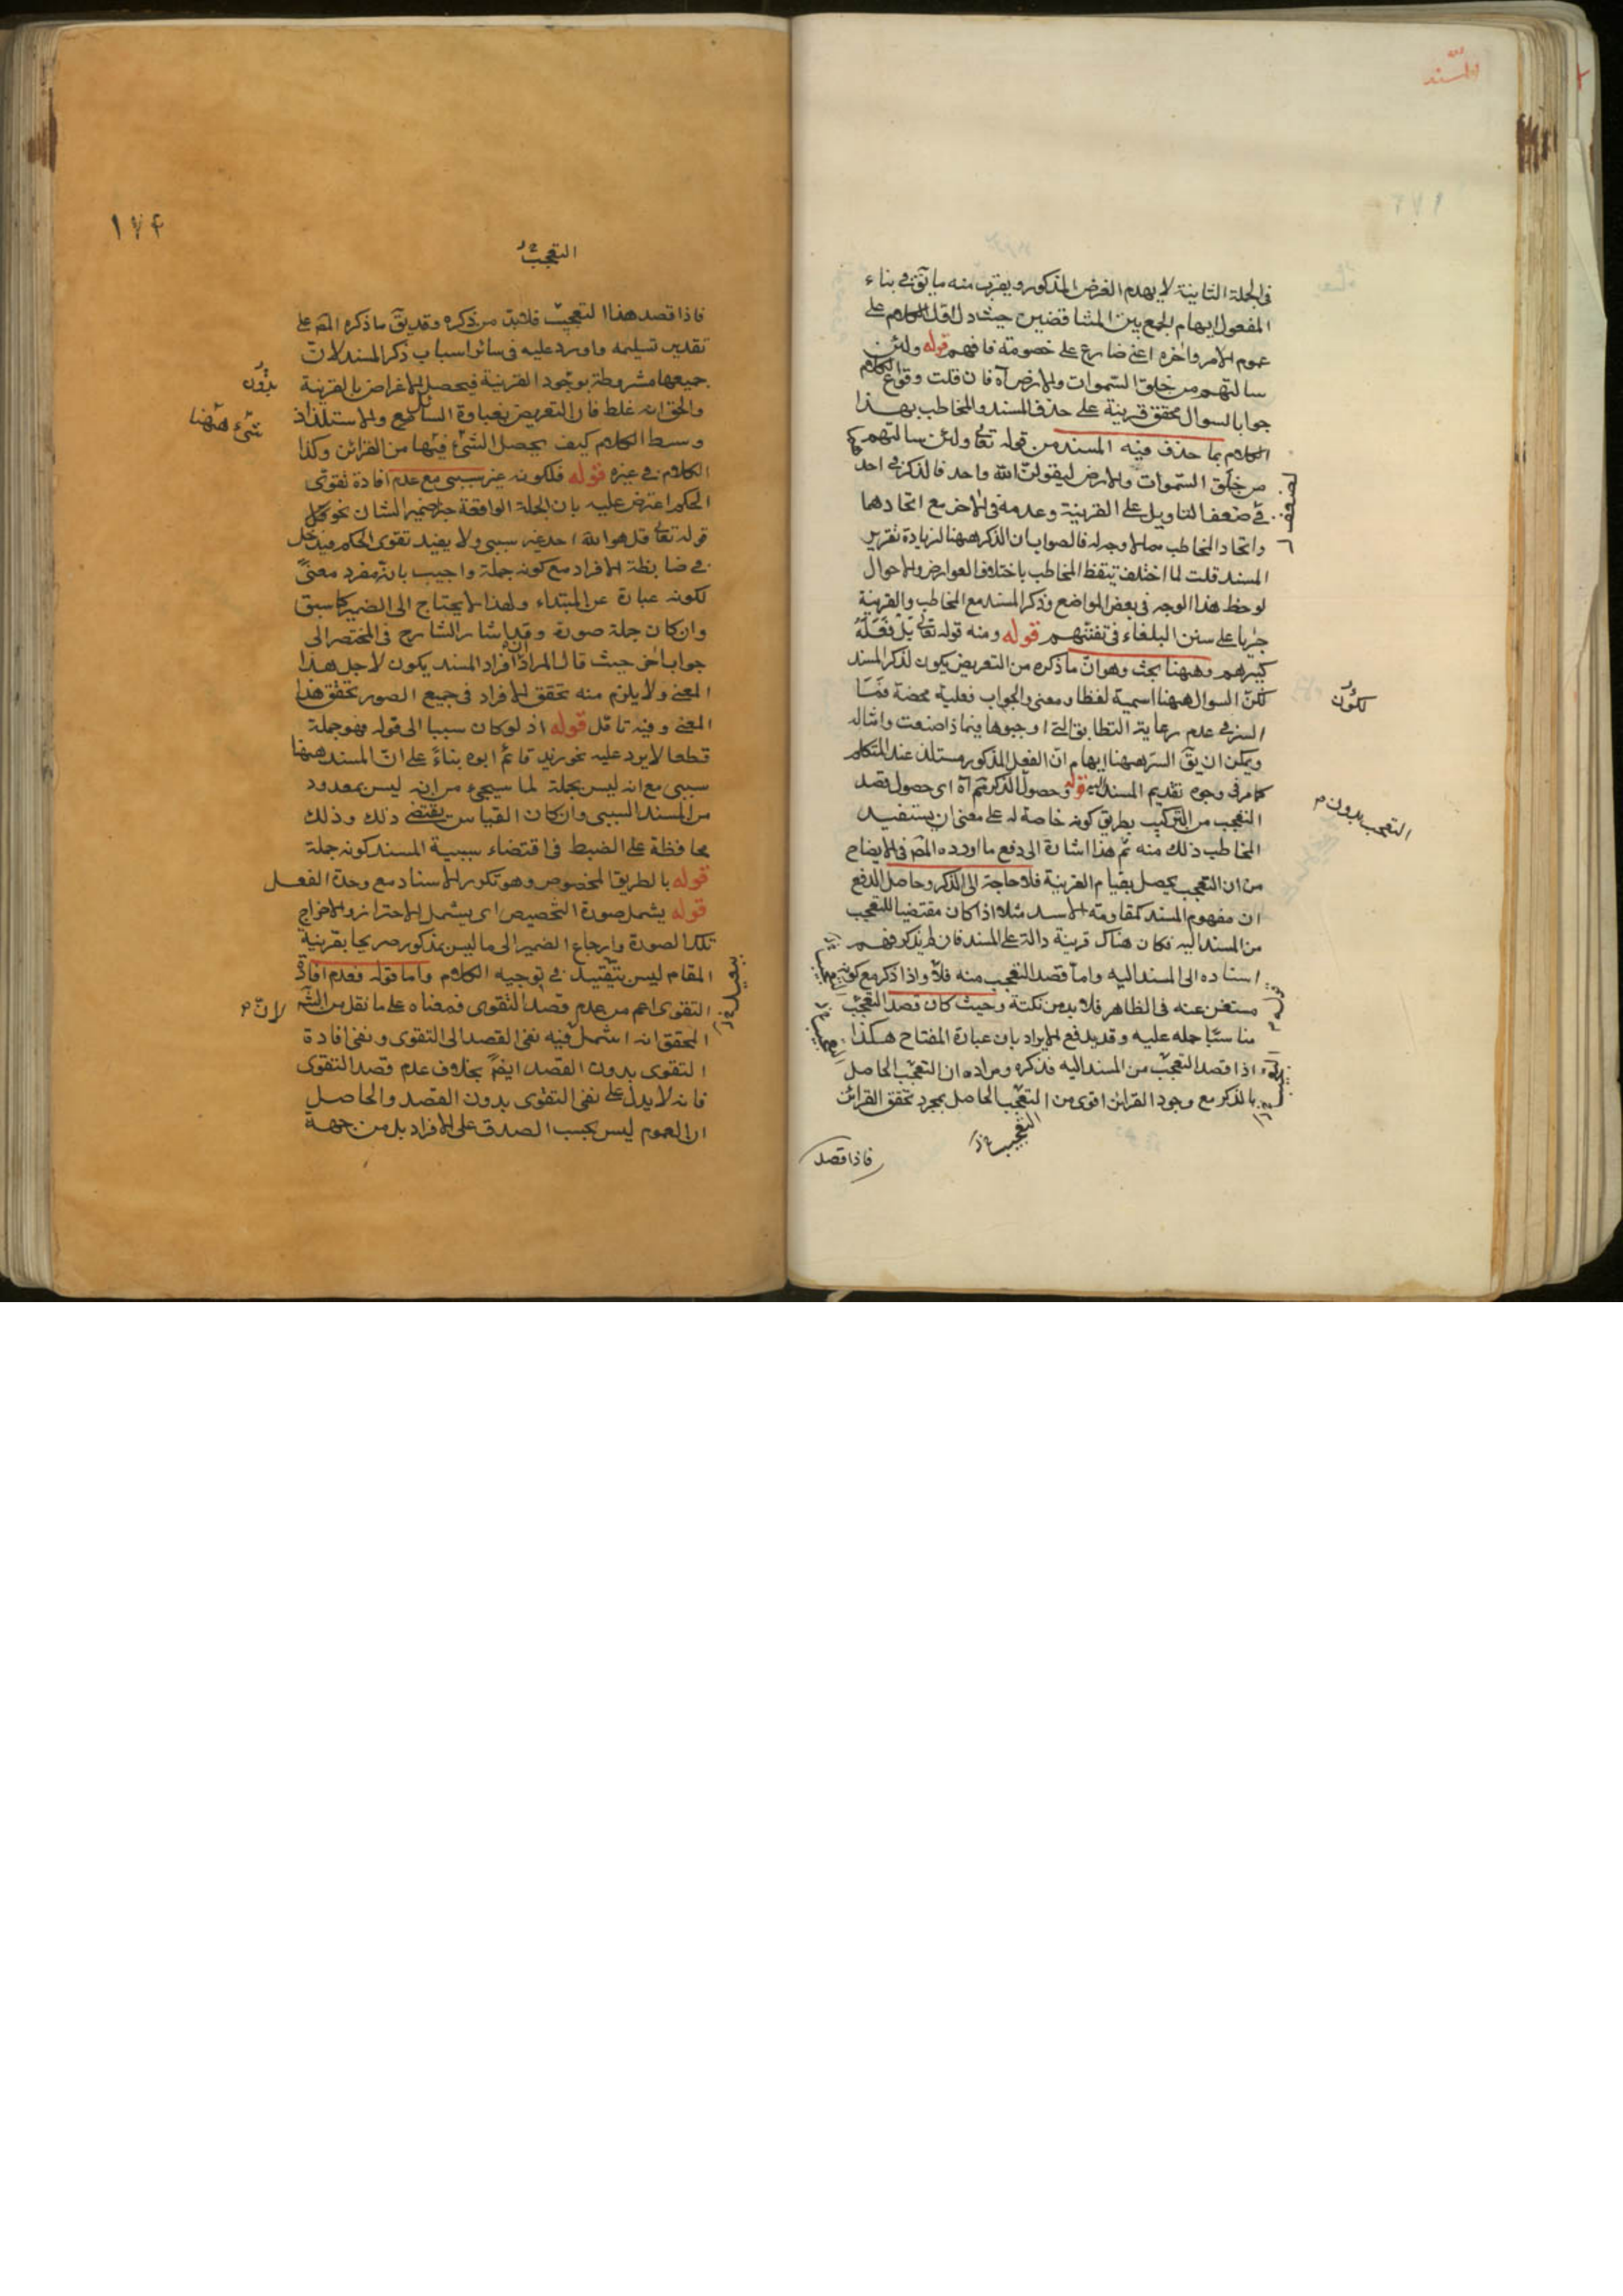 المسند
فى الجملة الثانية لا يهدم الغرض المذكور ويقرب منه ما يق فى بناء
المفعول ايهام الجمع بين المتناقضين حيث دل اول الكلام على
عموم الامر واخره اعنى ضارع على خصومة فافهم قوله ولئن
سالتهم من خلق السموات والارض اه فان قلت وقوع الكلام
جوابا لسوال محقق قرينة على حذف المسند والمخاطب بهذا
الكلام بما حذف فيه المسند من قوله تعالى ولئن سالتهم
من خلق السموات والارض ليقولن الله واحد فالذكر فى احد
ضعف التاويل على القرينة وعدمه فى الاخر مع اتحادهما
واتحاد المخاطب مما لا وجه له فالصواب ان الذكر ههنا لزيادة تقرير
المسند قلت لما اختلف تيقظ المخاطب باختلاف العوارض والاحوال
لوحظ هذا الوجه فى بعض المواضع وذكر المسند مع المخاطب والقرينة
جريا على سنن البلغاء فى تفننهم قوله ومنه قوله تعالى بل فعله
كبيرهم وههنا بحث وهو ان ما ذكره من التعريض يكون لذكر المسند
لكن السوال ههنا اسمية لفظا ومعنى والجواب فعلية محضة فما
السر فى عدم رعاية التطابق التى اوجبوها فيما ذا صنعت وامثاله
ويمكن ان يق السر ههنا ايهام ان الفعل المذكور مستلذ عند المتكلم
كما مر فى وجوه تقديم المسند اليه قوله وحصول الذكر ثم اه اى حصول قصد
التعجب من التركيب بطريق كونه خاصة له على معنى ان يستفيد
المخاطب ذلك منه ثم هذا اشارة الى دفع ما اورده المص فى الايضاح
من ان التعجب يحصل بقيام القرينة فلا حاجة الى الذكر وحاصل الدفع
ان مفهوم المسند كمقاومة الاسد مثلا اذا كان مقتضيا للتعجب
من المسند اليه فكان هناك قرينة دالة على المسند فان لم يذكر فهم
اسناده الى المسند اليه واما قصد التعجب منه فلا واذا ذكر مع كونه
مستغن عنه فى الظاهر فلا بد من نكتة وحيث كان قصد التعجب
مناسبا حمله عليه وقد يدفع الايراد بان عبارة المفتاح هكذا
او اذا قصد التعجب من المسند اليه فذكره ومراده ان التعجب الحاصل
بالذكر مع وجود القرائن اقوى من التعجب الحاصل بمجرد تحقق القرائن
لكون
التعجب بدون
التعجيب
فاذا قصد
١٧٤
التعجب
فاذا قصد هذا التعجيب فلا بد من ذكره وقد يق ما ذكره المص على
تقدير تسليمه وارد عليه فى سائر اسباب ذكر المسند لان
جميعها مشروطة بوجود القرينة فيحصل الاغراض بالقرينة
والحق انه غلط فان التعريض بغباوة السامع والاستلذاذ
وبسط الكلام كيف يحصل الشئ فيها من القرائن وكذا
الكلام فى غيره قوله فلكونه غير سببى مع عدم افادة تقوى
الحكم اعترض عليه بان الجملة الواقعة خبر ضمير الشان نحو
قوله تعالى قل هو الله احد غير سببى ولا يفيد تقوى الحكم فيدخل
فى ضابطة الافراد مع كونه جملة واجيب بانه مفرد معنى
لكونه عبارة عن المبتداء ولهذا لا يحتاج الى الضمير كما سبق
وان كان جملة صورة وقد اشار الشارح فى المختصر الى
جواب اخر حيث قال المراد ان افراد المسند يكون لاجل هذا
المعنى ولا يلزم منه تحقق الافراد فى جميع الصور تحقق هذا
المعنى وفيه تامل قوله اذ لو كان سببيا الى قوله فهو جملة
قطعا لا يرد عليه نحو زيد قائم ابوه بناء على ان المسند ههنا
سببى مع انه ليس بجملة لما سيجئ من انه ليس بمعدود
من المسند السببى وان كان القياس يقتضى ذلك وذلك
محافظة على الضبط فى اقتضاء سببية المسند كونه جملة
قوله بالطريق المخصوص وهو تكرر الاسناد مع وحدة الفعل
قوله يشمل صورة التخصيص اى يشمل الاحتراز والاخراج
تلك الصورة وارجاع الضمير الى ما ليس بمذكور صريحا بقرينة
المقام ليس بتقييد فى توجيه الكلام واما قوله فعدم افادة
التقوى اعم من عدم قصد التقوى فمعناه على ما نقل من الش
المحقق انه اشمل فيه نفى القصد الى التقوى ونفى افادة
التقوى بدون القصد ايضا بخلاف عدم قصد التقوى
فانه لا يدل على نفى التقوى بدون القصد والحاصل
ان العموم ليس بحسب الصدق على الافراد بل من جهة
بدون
شئ ههنا
لان